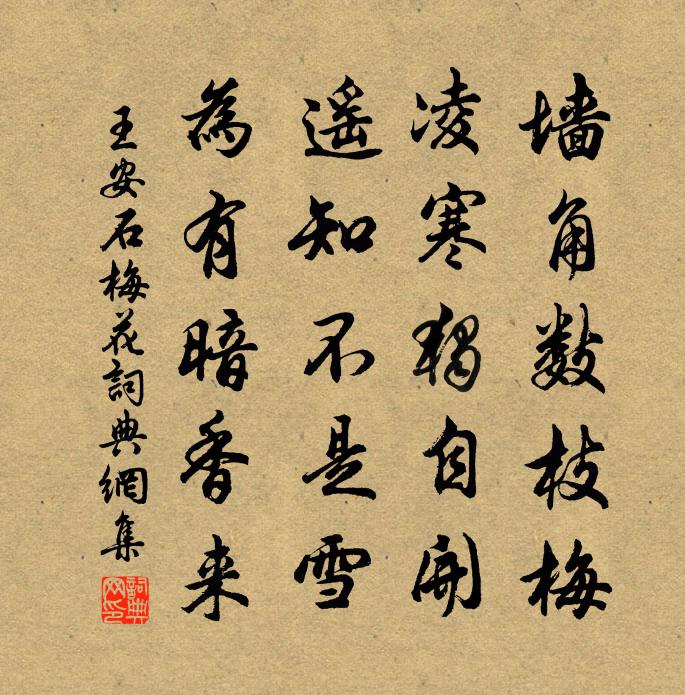 墙角数枝梅
凌寒獨自開
遥知不是雪
為有暗香来
王安石梅花詞典網集
詞典网印